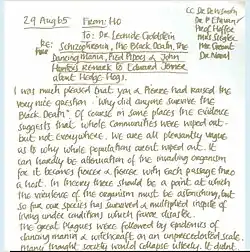 29 Aug 65 From: HO
To: Dr Leonide Goldstein
CC. Dr
Prof Hoffer
Schizophrenia, The Black Death, The
Dancing Mania, Pied Pipers & John
Hunter's Remark to Edward Jenner
about Hedge Hogs.
I was much pleased that you & Pierre had raised the
very nice question "Why did anyone survive the
Black Death" Of course in some places the evidence
suggests that whole communities were wiped out -
but not everywhere. We are all pleasantly vague
as to why whole population werent wiped out. It
can hardly be attenuation of the invading organism
for it becomes fiercer & fiercer with each passage thro
a host. In theory there should be a point at which
the virulence of the organism must be astonishing, but
so far our species has survived a multiplied inspite of
living under conditions which favour disaster.
The great Plagues were followed by epidemics of
dancing mania & witchcraft on an unprecedented scale
many thought society would collapse utterly. It didnt